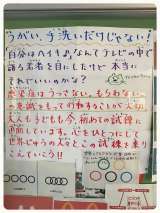 うがい、手洗いだけじゃない!
自分はヘイキ♪なんてテレビの中で
語る若者を目にしたけど 本当に
それでいいのかな?
感染症はうつさない、もらわない
の意識をもって行動することが大切
大人も子どもも今、初めての試練に
直面しています。心をひとつにして
世界じゅうの人々とこの試練を乗り
こえていこう!!